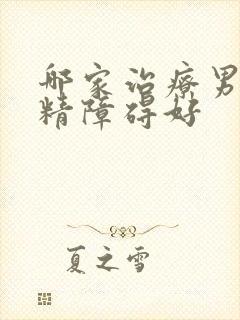 哪家治療男
精障碍好
夏之雪